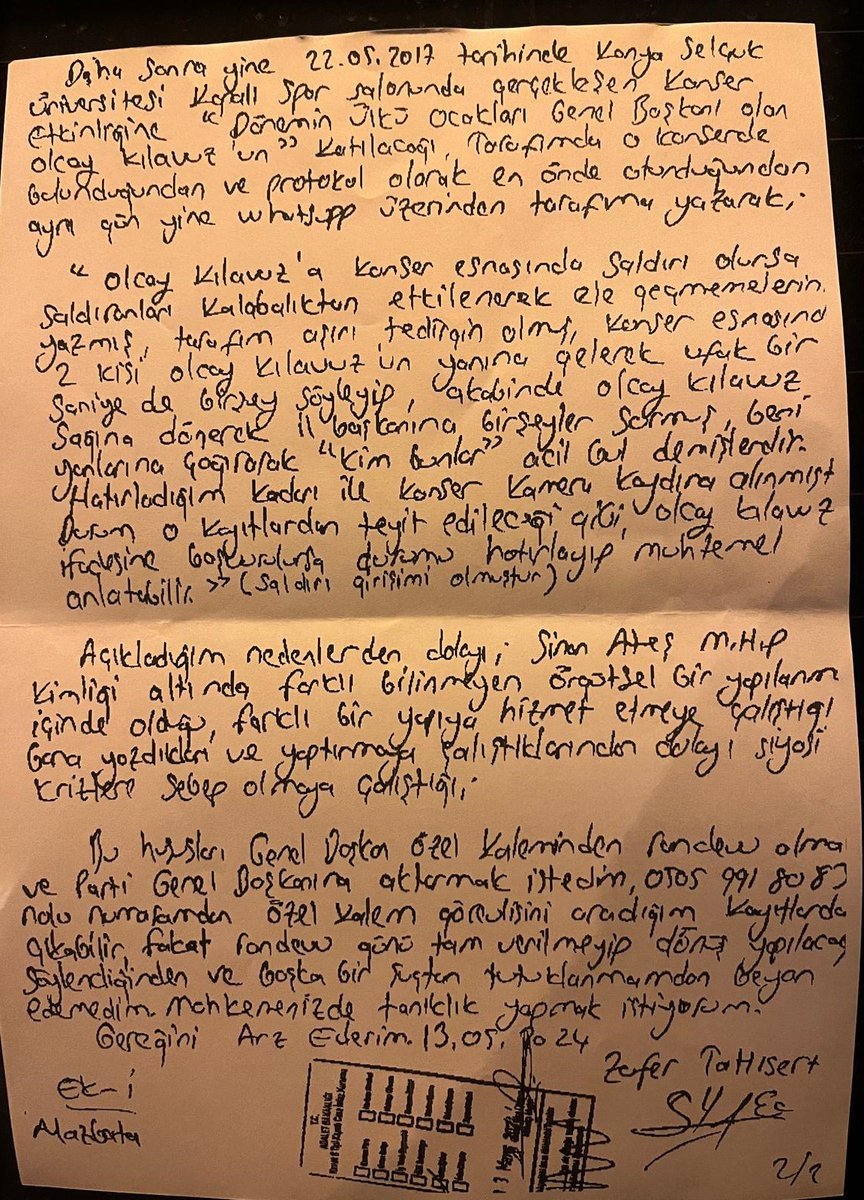 Daha sonra yine 22.05.2017 tarihinde Konya Selçuk
Üniversitesi Kapalı Spor salonunda gerçekleşen Konser
etkinliğine "Dönemin Ülkü Ocakları Genel Başkanı olan
Olcay Kılavuz'un" katılacağı, Tarafımda o konserde
bulunduğundan ve protokol olarak en önde oturduğundan
aynı gün yine whatsupp üzerinden tarafıma yazarak,.
" Olcay Kılavuz'a Konser esnasında Saldırı olursa
Saldıranları Kalabalıktan etkilenerek ele geçmemelerin.
yazmış, tarafım aşırı tedirgin olmuş, Konser esnasınd
2 kişi olcay Kılavuz'un yanına gelerek ufak bir
Saniye de birşey söyleyip, akabinde olcay Kılavuz
Sağına dönerek il başkanına birşeyler sormuş, beni
yanlarına çağırarak "Kim bunlar" acil bul demişlerdir.
Hatırladığım Kadarı ile Konser Kamera Kaydına alınmışt
Durum o Kayıtlardan teyit edileceği gibi, olcay Kılavuz
ifadesine başvurulursa durumu hatırlayıp muhtemel
anlatabilir." (Saldırı girişimi olmuştur)
Açıkladığım nedenlerden dolayı; Sinan Ateş M.H.P
Kimliği altında farklı bilinmeyen örgütsel bir yapılanm
içinde olduğu, farklı bir yapıya hizmet etmeye çalıştığı
bana yazdıkları ve yaptırmaya çalıştıklarından dolayı siyasi
Krizlere Sebep olmaya çalıştığı,.
Bu hususları Genel Başka Özel Kaleminden randevu alma
ve Parti Genel Başkanına aktarmak istedim, 0505 991 80 83
nolu numaramdan Özel Kalem görevlisini aradığım Kayıtlarda
çıkabilir, fakat randevu günü tam verilmeyip dönüş yapılacağ
Söylendiğinden ve başka bir suçtan tutuklanmamdan beyan
edemedim. Mahkemenizde tanıklık yapmak istiyorum.
Gereğini Arz Ederim. 13.05.2024
Zafer Tahısert
Ek-1
Mazbata
T.C.
ADALET BAKANLIĞI
2/2